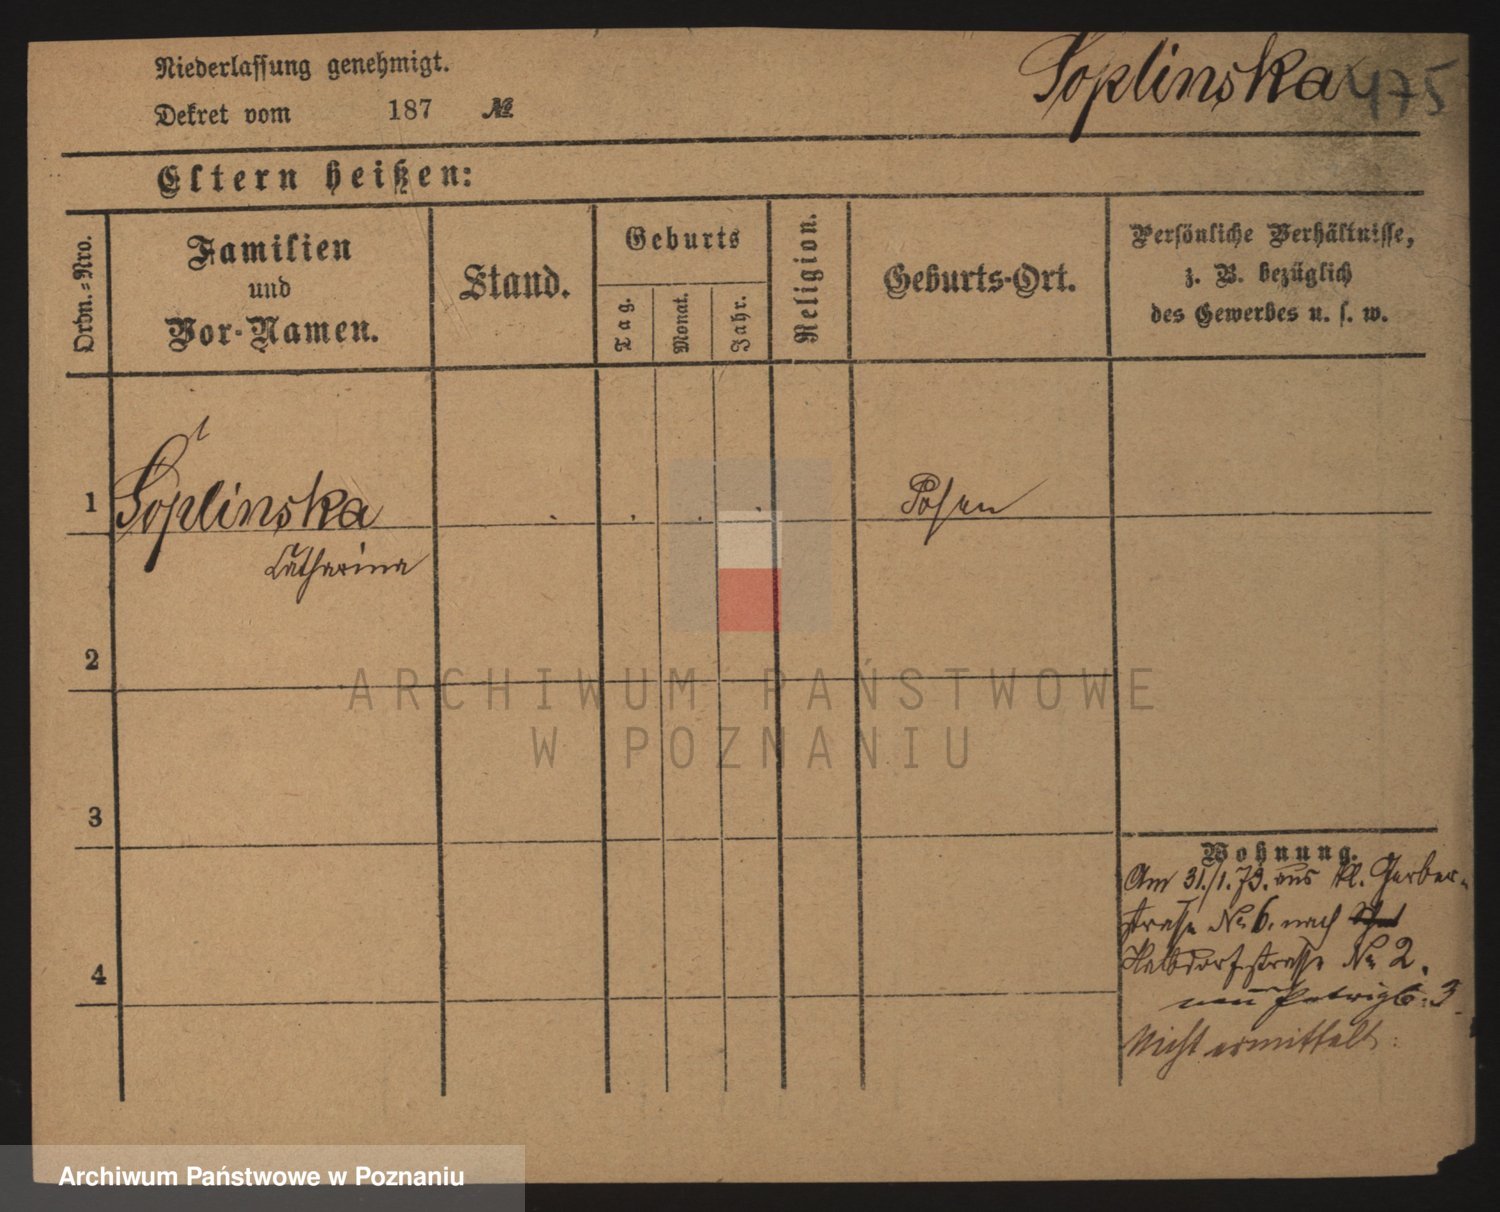 Niederlassung genehmigt.
Soplinska 475
Dekret vom 187 №
Eltern heißen:
Ordn.-Nro.
Familien
und
Vor-Namen.
Stand.
Geburts
Tag.
Monat.
Jahr.
Religion.
Geburts-Ort.
Persönliche Verhältnisse,
z. B. bezüglich
des Gewerbes u. s. w.
1 Soplinska
Catharina
Posen
2
3
4
Wohnung.
Am 31./1. 73. aus kl. Gerber-
strasse No 6. nach
Halbdorfstrasse No 2.
3
Nicht ermittelt.
ARCHIWUM PAŃSTWOWE
W POZNANIU
Archiwum Państwowe w Poznaniu